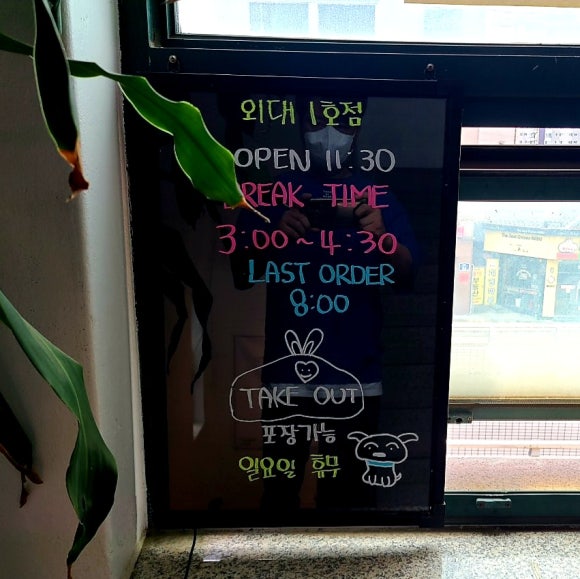 외대 1호점
OPEN 11:30
BREAK TIME
3:00~4:30
LAST ORDER
8:00
TAKE OUT
포장가능
일요일 휴무